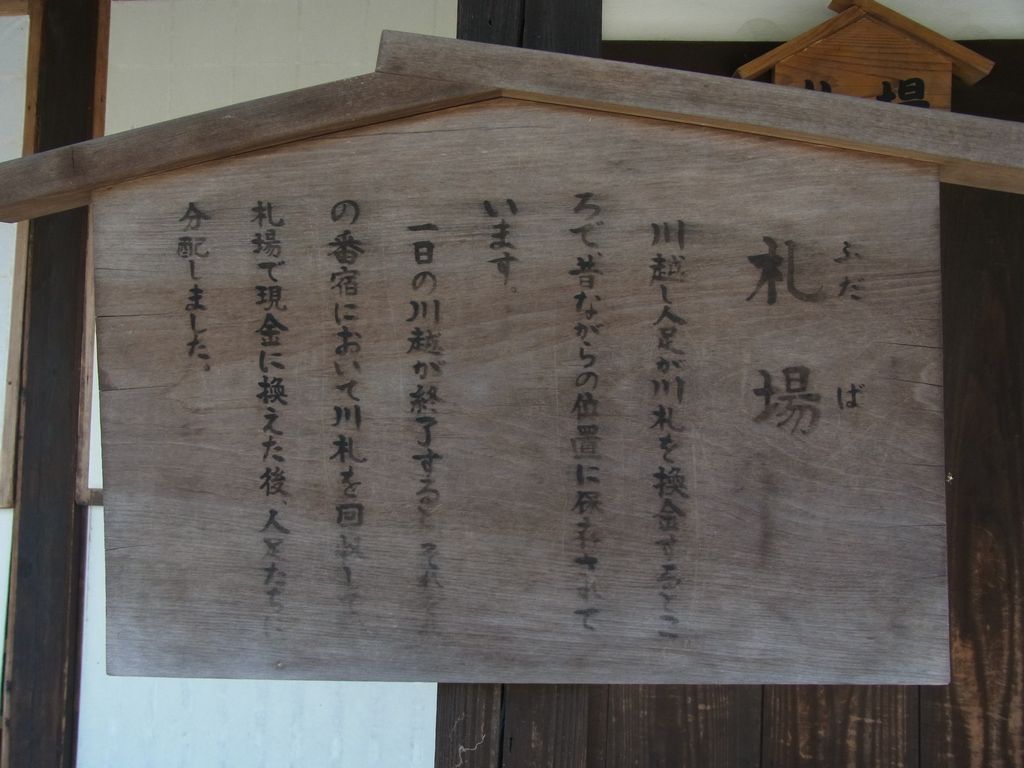 ふだ ば
札場
川越し人足が川札を換金するとこ
ろで、昔ながらの位置に保存されて
います。
一日の川越が終了すると、それぞれ
の番宿において川札を回収して、
札場で現金に換えた後、人足たちに
分配しました。
札場